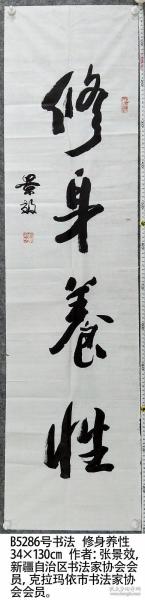 修身養性
景效
B5286号书法 修身养性
34×130cm 作者:张景效,
新疆自治区书法家协会会
员,克拉玛依市书法家协
会会员。